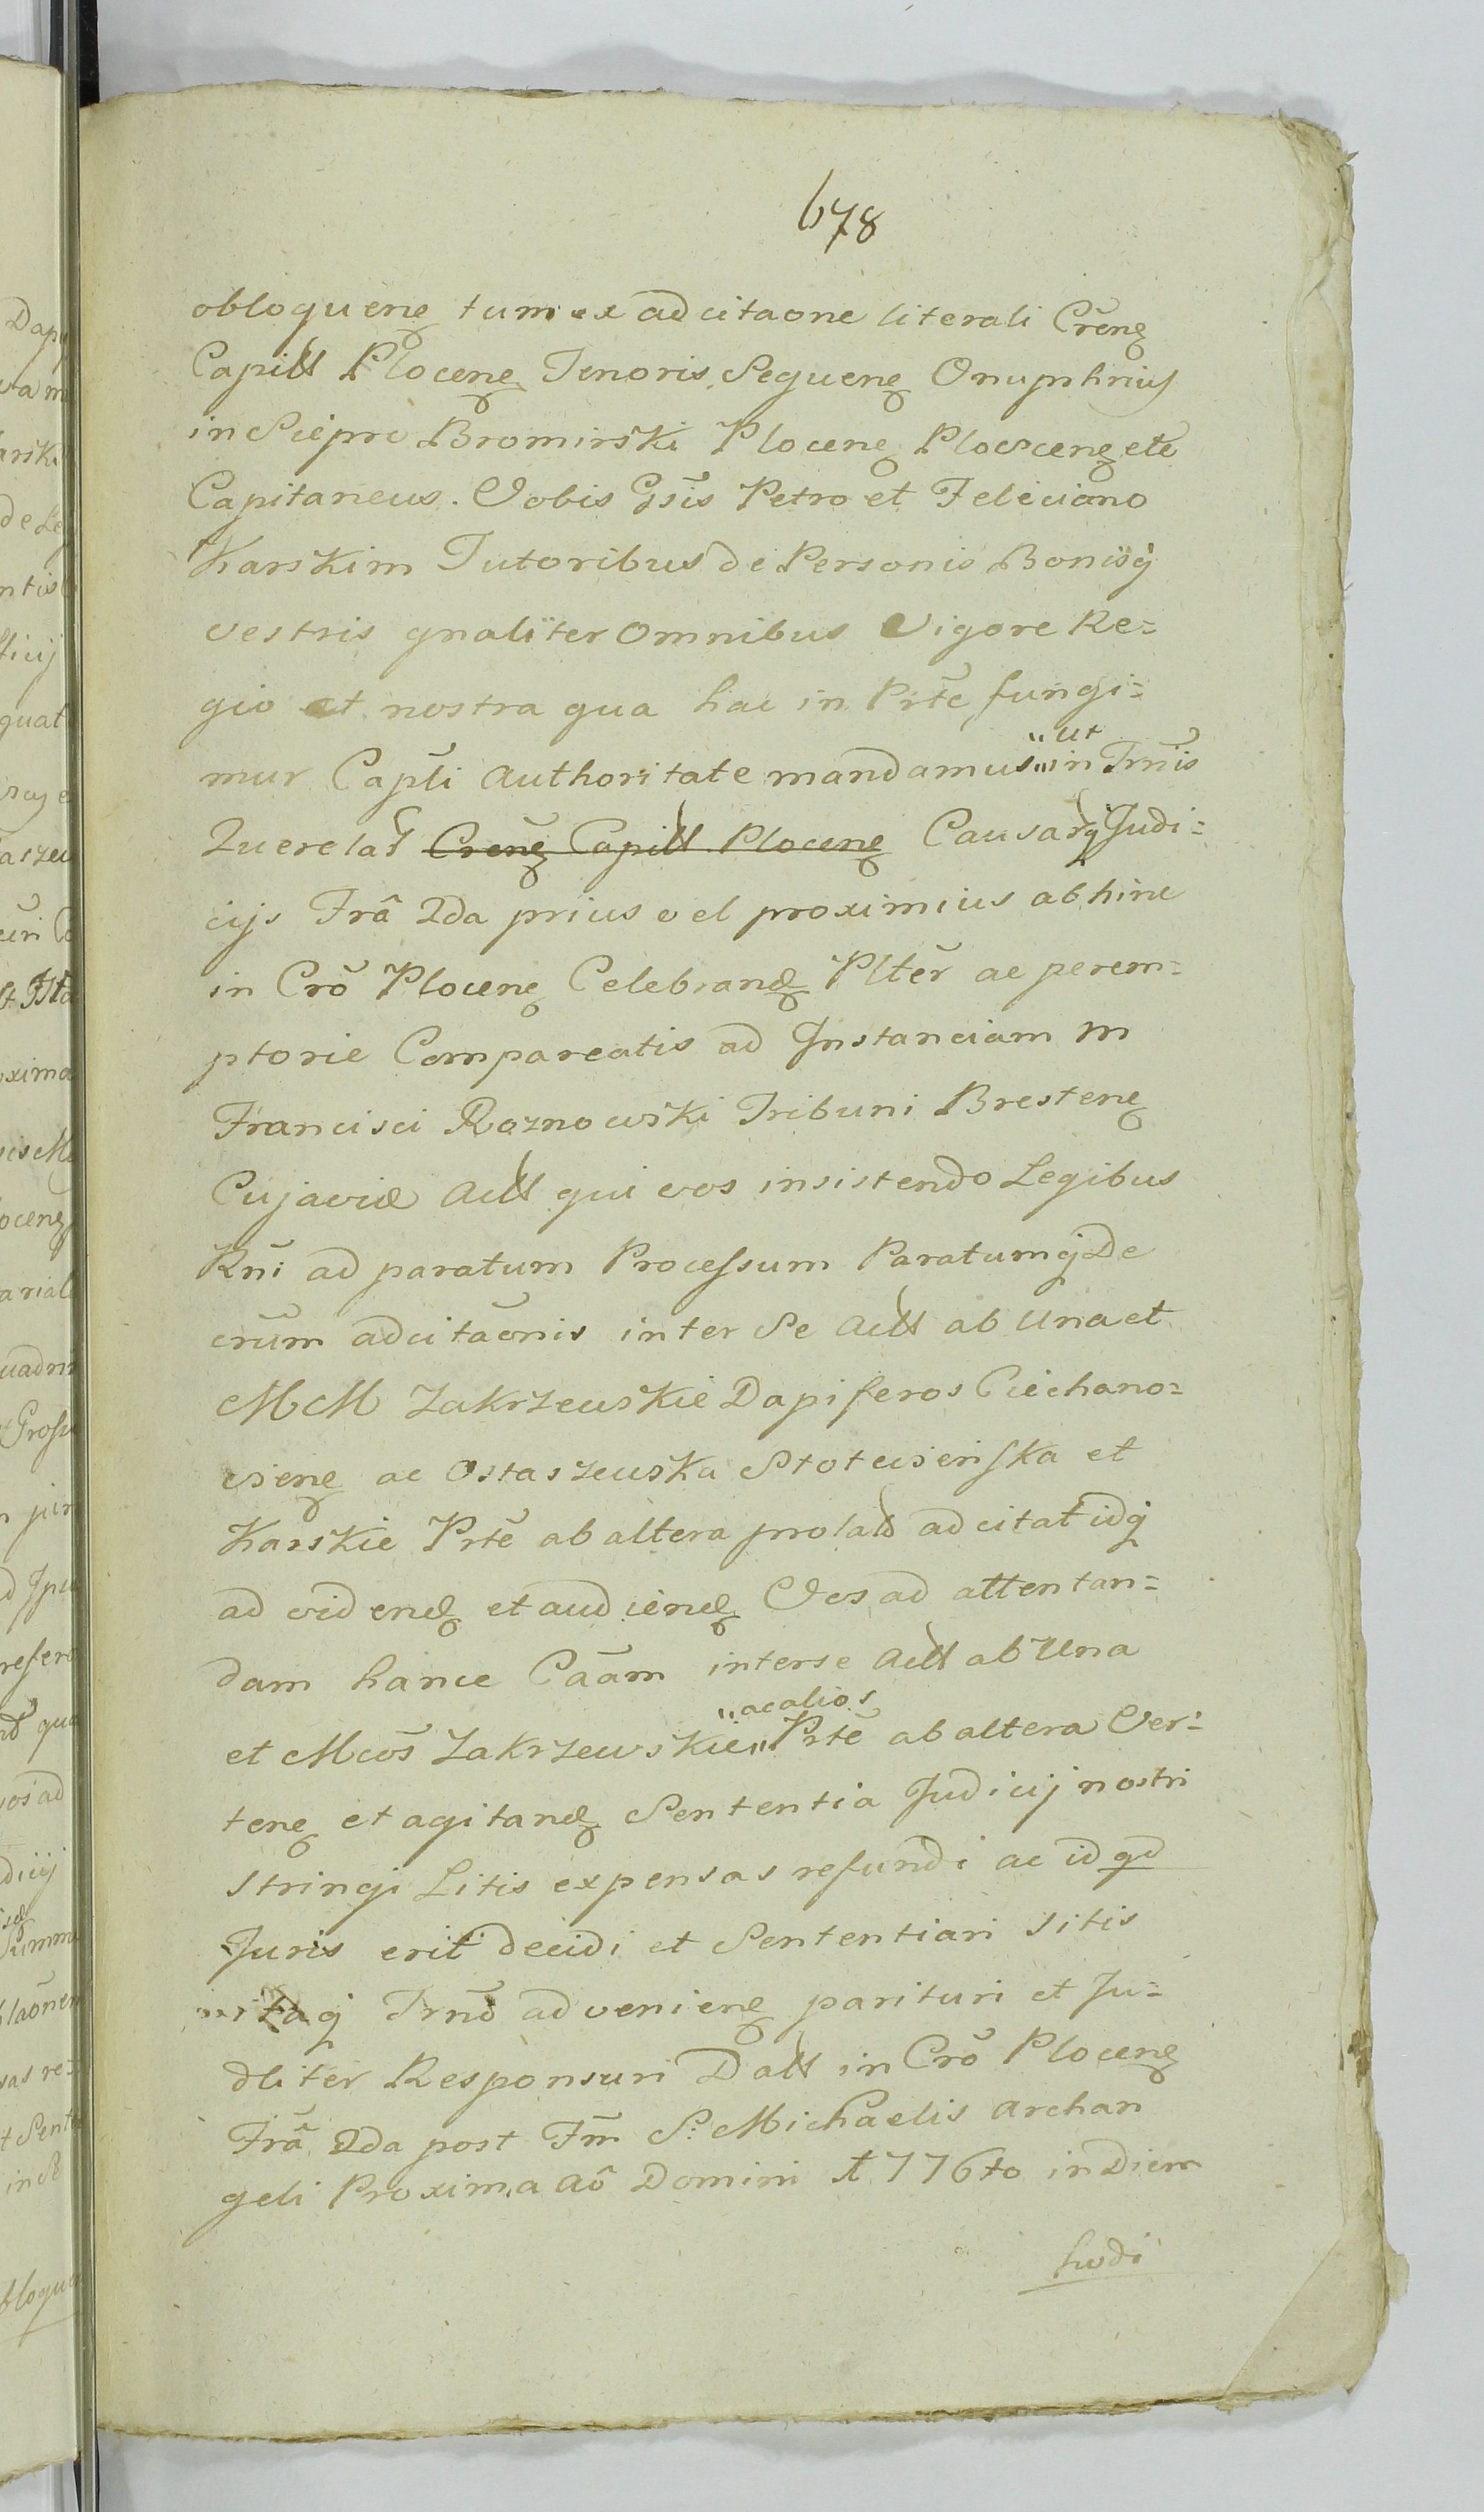 678
obloquenꝫ tum ex adcitaone literali Crēnꝫ
Capitl Plocenꝫ Tenoris Sequenꝫ Onuphrius
in Siepre Bromirski Plocenꝫ Plocscenꝫ etc
Capitaneus. Vobis Gsis Petro et Feliciano
Karskim Tutoribus de Personis Bonisq̃
vestris gnaliter omnibus Vigore Re=
gio et nostra qua hac in Prte fungi=
mur Capli Authoritate mandamus „ut„ in Trnis
Querelar̃ Crenꝫ Capitl Plocenꝫ Causarq̃ Judi=
cijs Frâ 2da prius vel proximius abhinc
in Crô Plocenꝫ Celebrandꝫ Plter ac perem=
ptorie Compareatis ad Instanciam M
Francisci Roznowski Tribuni Brestenꝫ
Cujaviæ Actl qui vos insistendo Legibus
Rñi ad paratum Processum Paratumq̃ De
crum adcitaonis inter Se Actl ab Una et
MM Zakrzewskie Dapiferos Ciechano=
vienꝫ ac Ostaszewska Stotwisenska et
Karskie Prte ab altera prolad adcitat idq̃
ad videndꝫ et audiendꝫ Vos ad attentan=
dam hance Caam interse Actl ab Una
et Mcos Zakrzewskie „ac alios„ Prte ab altera Ver=
tenꝫ et agitandꝫ Sententia Judicij nostri
stringi Litis expensas refundi ac id qd
Juris erit decidi et Sententiari sitis
itaq̃ Trnô advenienꝫ parituri et Ju=
dliter Responsuri Datl in Crô Plocenꝫ
Frâ 2da post Fm̃ S. Michaelis Archan
geli Proxima Aô Domini 1776to in Diem
hodi